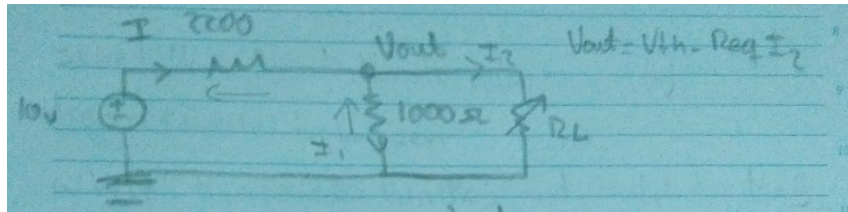 I 2200
Vout I₂ Vout = Vth - Req I₂
10v
1000Ω
I₁ RL